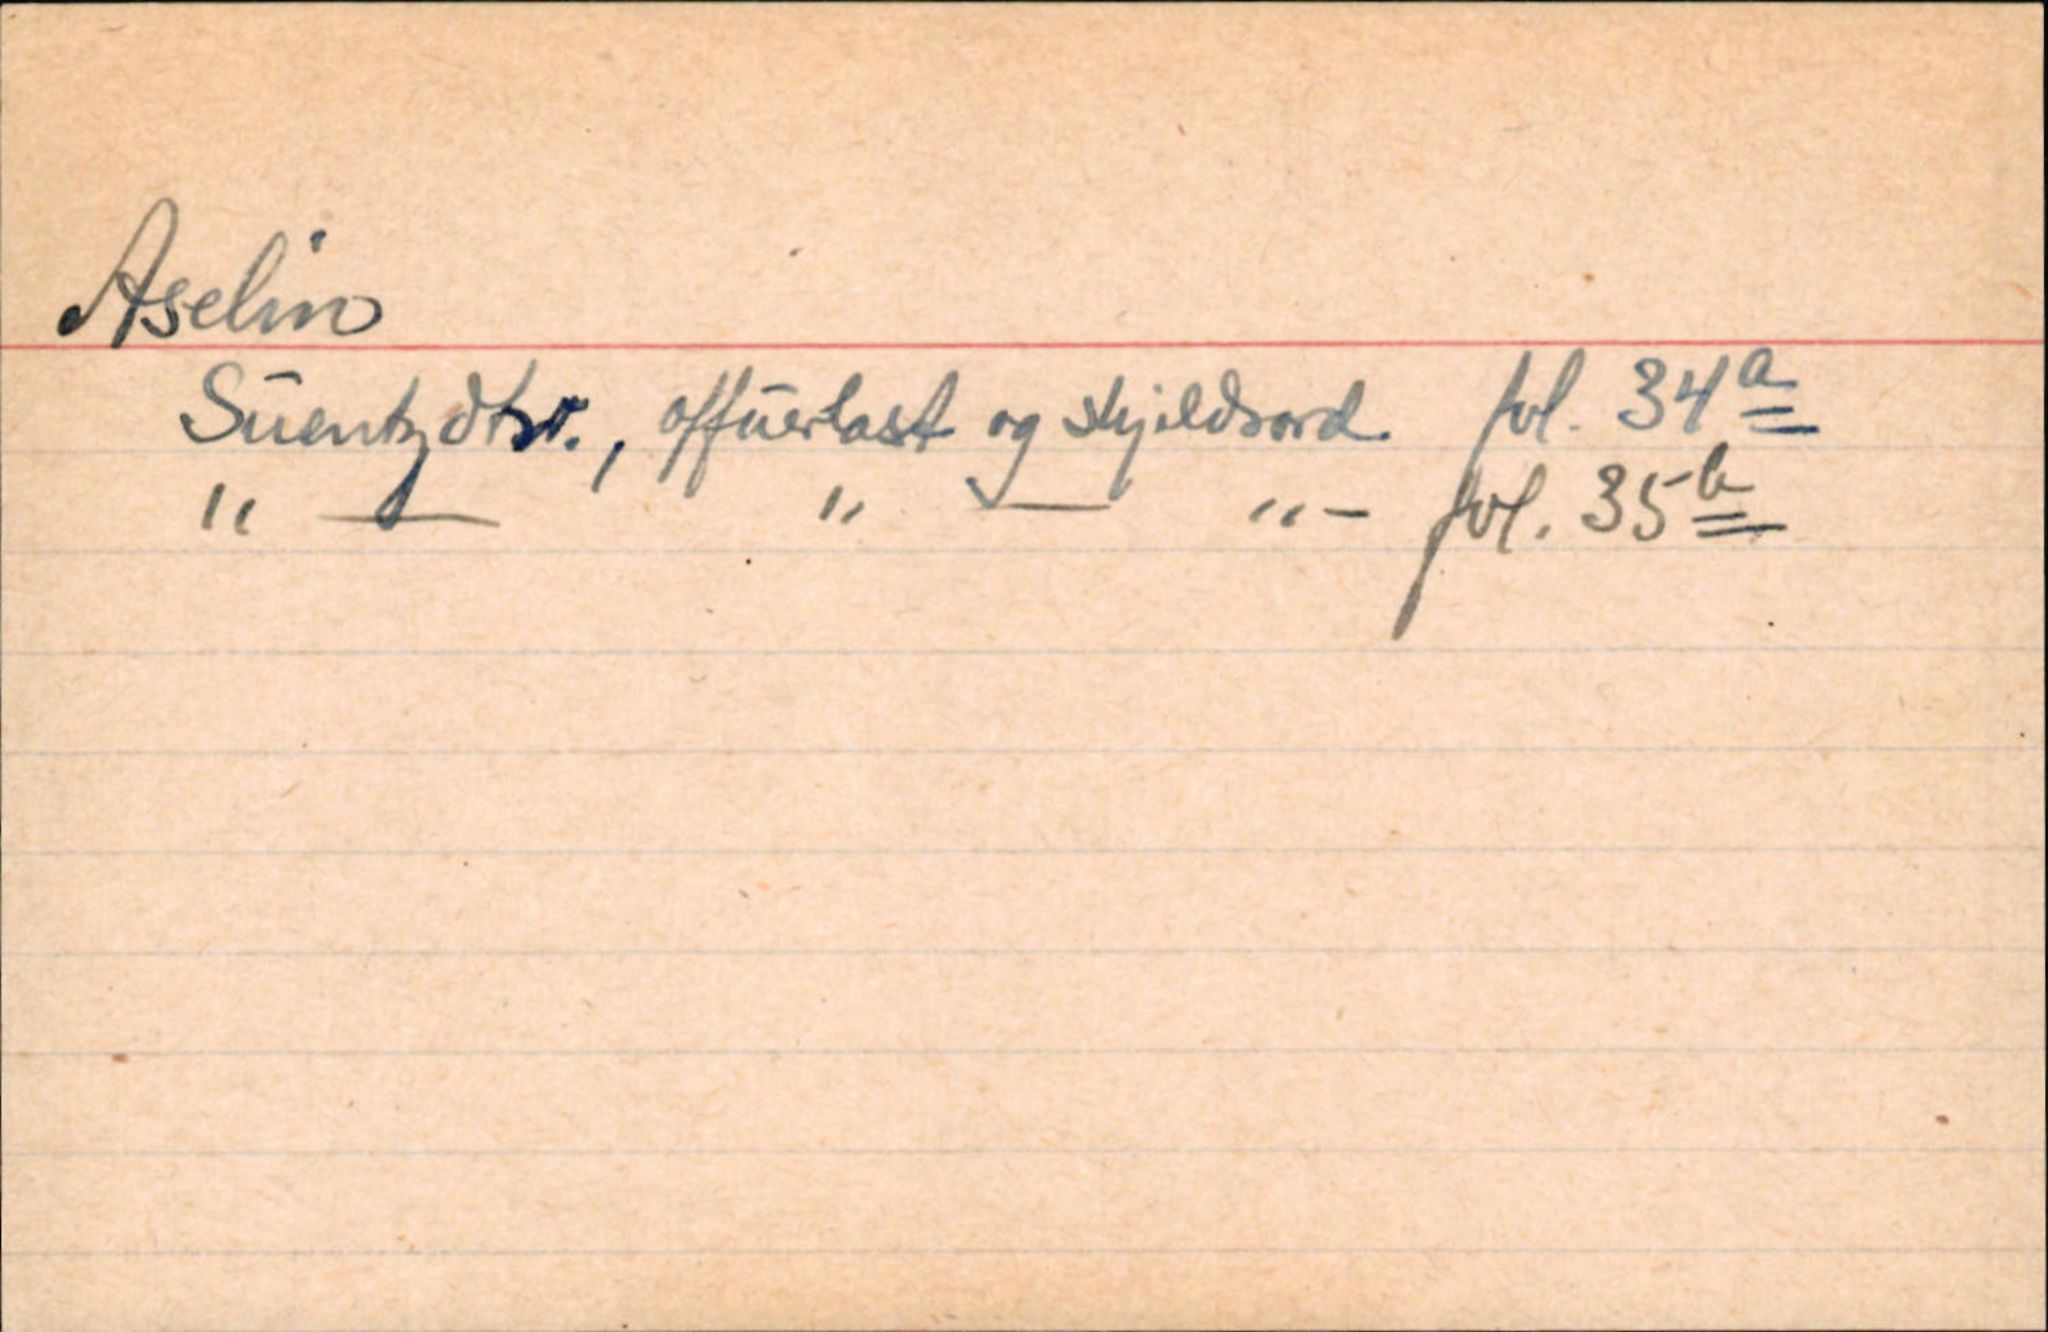 Aselin
Sūentzdtr., offūerlast og skjeldsord. fol. 34a
" — " — " — fol. 35b